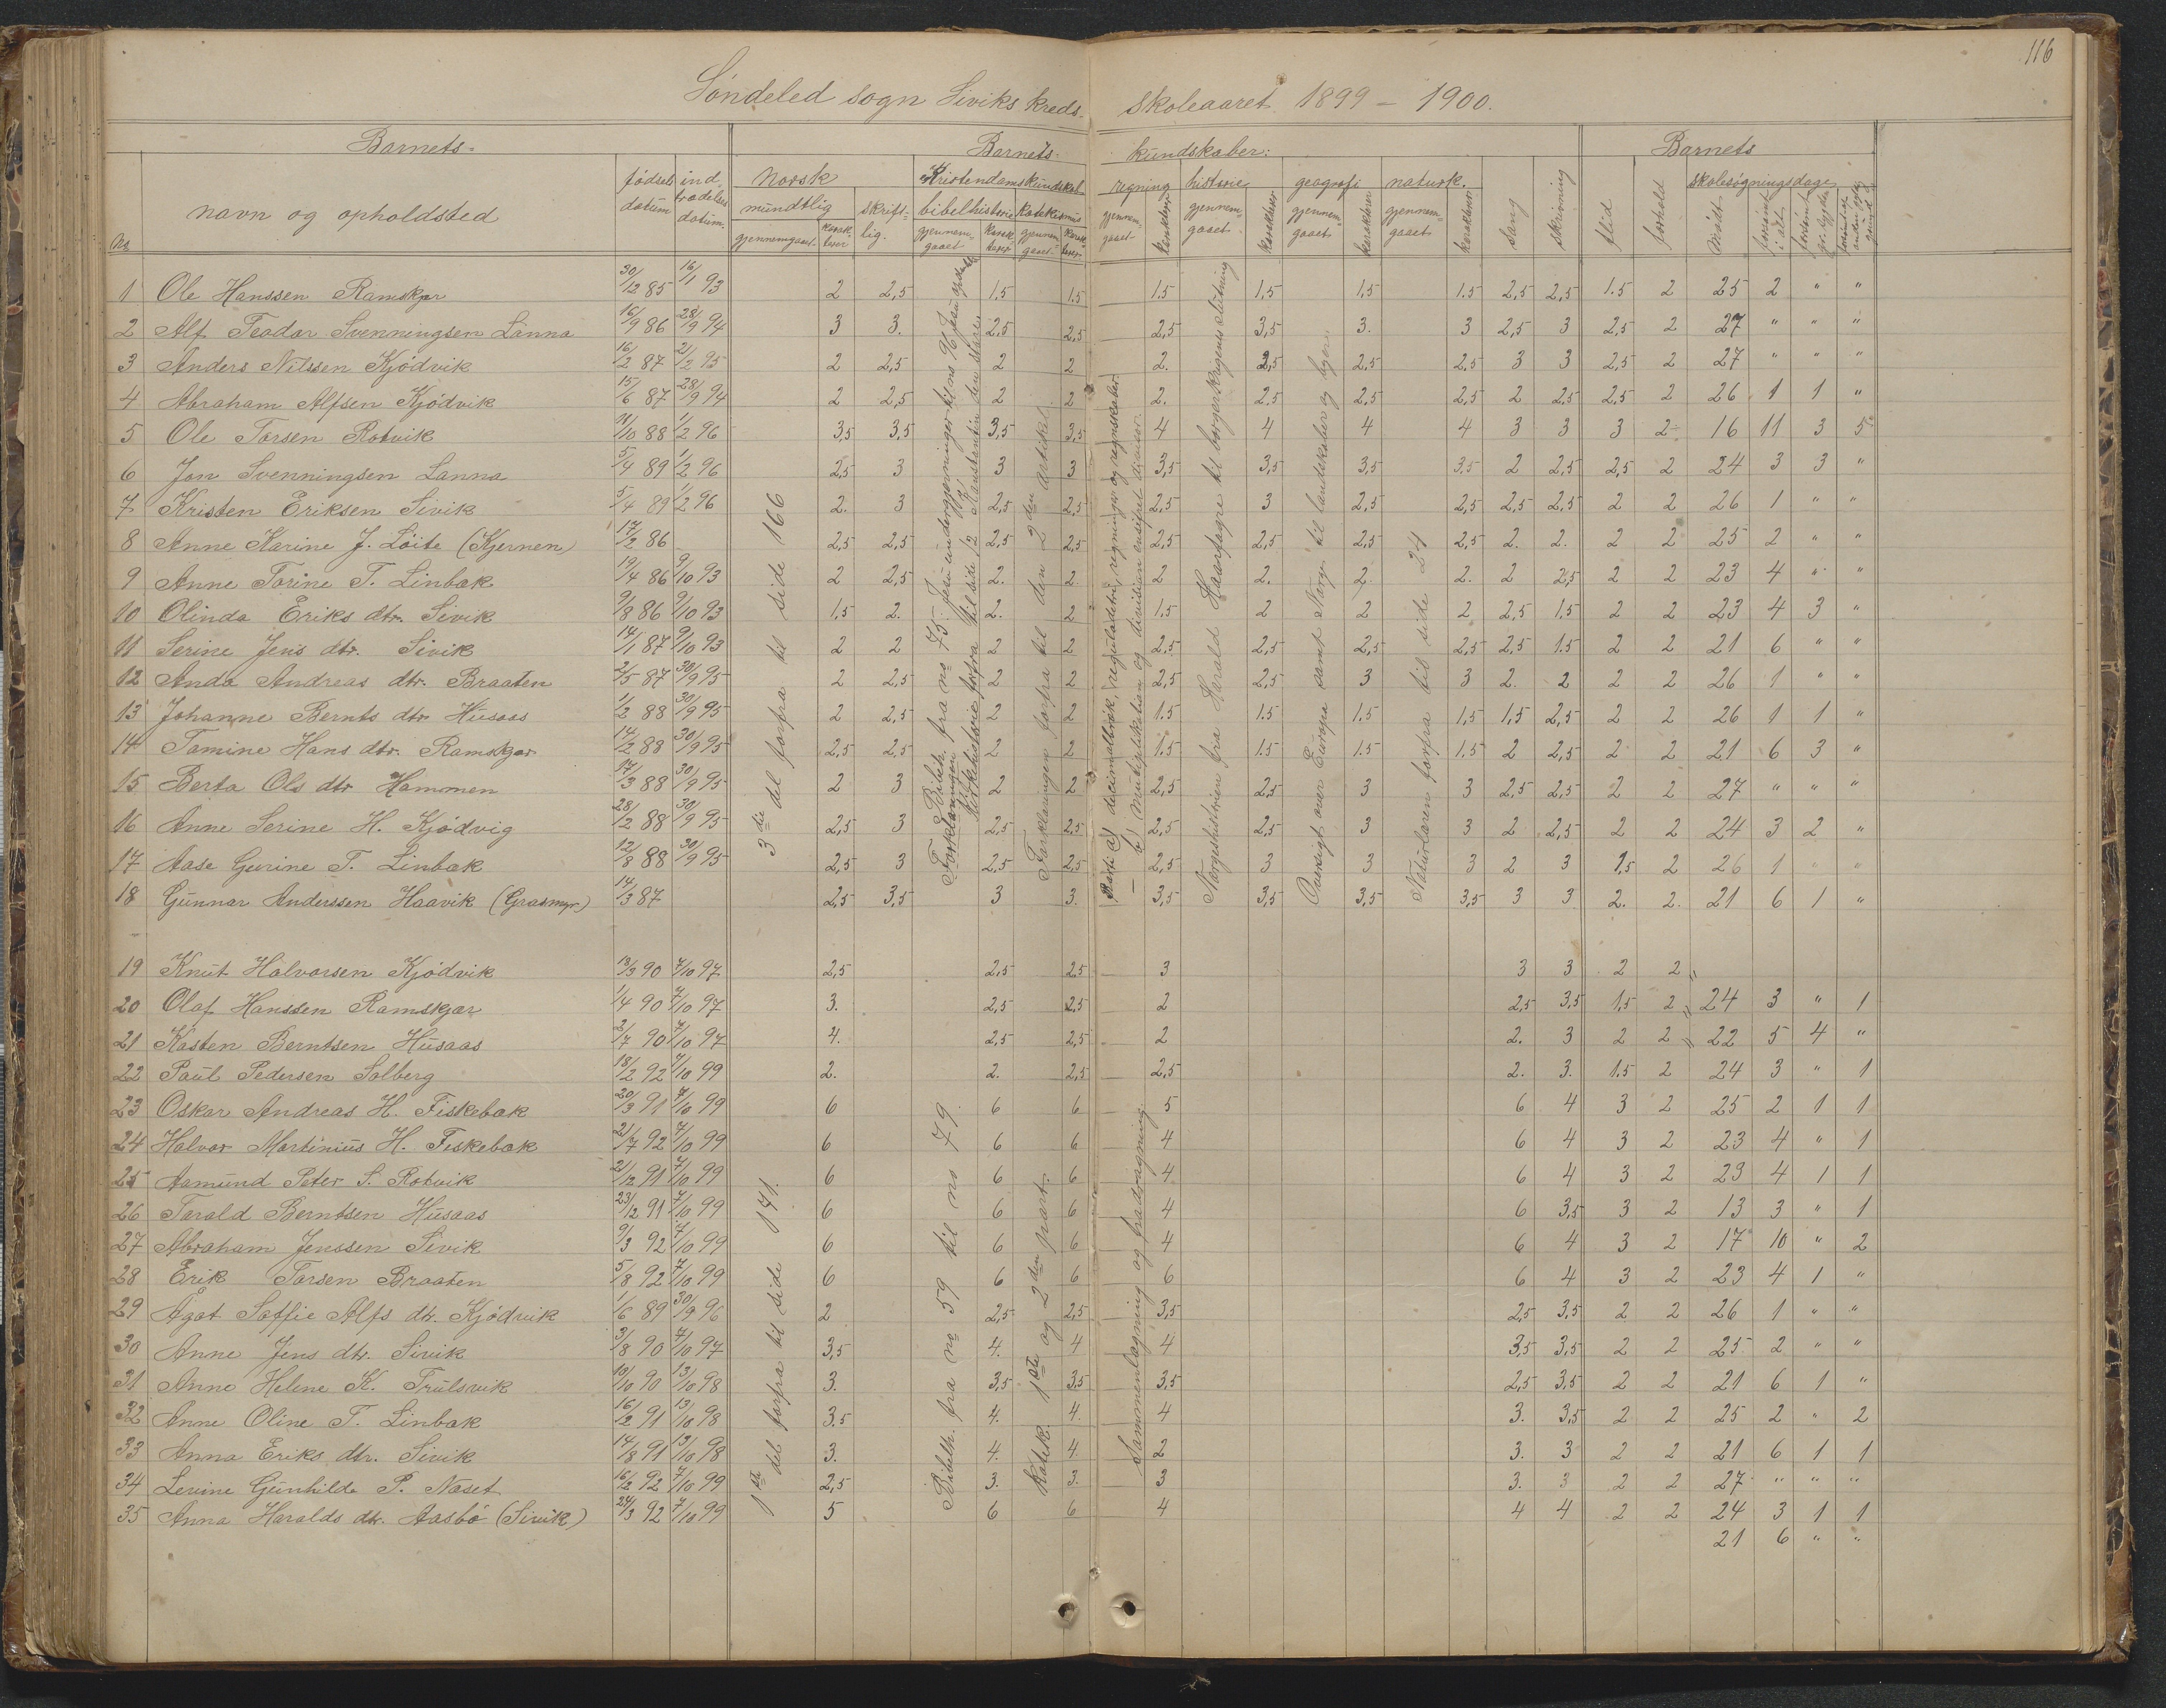 116
Søndeled sogn Siviks kreds. skoleaaret 1899 – 1900.
Barnets- Barnets- kundskaber: Barnets
No navn og opholdsted fødsels datum indtrædelses datum. norsk mundtlig gjennemgaaet karakterer skriftlig. Kristendomskundskab bibelhistorie gjennemgaaet karakterer Katekismus gjennemgaaet karakterer regning gjennemgaaet karakterer historie gjennemgaaet karakterer geografi gjennemgaaet karakterer naturk. gjennemgaaet karakterer Sang Skrivning flid forhold skolesøgningsdage Mødt forsømt i alt
1 Ole Hanssen Ramskjær 30/12 85 16/1 93 2 2,5 1.5 1.5 1.5 1,5 1,5 1.5 2,5 2,5 1.5 2 25 2 " "
2 Alf Teodor Svenningsen Lanna 16/9 86 28/9 94 3 3. 2,5 2,5 2,5 3,5 3. 3 2,5 3 2,5 2 27 " " "
3 Anders Nilssen Kjødvik 16/2 87 21/2 95 2 2,5 2 2 2. 2,5 2,5 2.5 3 3 2,5 2 27 " " "
4 Abraham Alfsen Kjødvik 15/6 87 28/9 94 2 2,5 2 2 2. 2.5 2,5 2,5 2 2,5 2,5 2 26 1 1 "
5 Ole Torsen Rotvik 11/10 88 1/2 96 3,5 3,5 3,5 3,5 4 4 4 4 3 3 3 2 16 11 3 5
6 Jon Svenningsen Lanna 5/4 89 1/2 96 2,5 3 3 3 3,5 3,5 3,5 3,5 2 2,5 2,5 2 24 3 3 "
7 Kristen Eriksen Sivik 5/4 89 1/2 96 2. 3 2,5 2,5 2,5 3 2,5 2,5 2,5 2,5 2 2 26 1 " "
8 Anne Karine J. Løite (Kjernen) 17/2 86 2,5 2,5 2,5 2,5 2,5 2,5 2,5 2,5 2. 2. 2 2 25 2 " "
9 Anne Torine T. Linbæk 19/4 86 9/10 93 2 2,5 2. 2. 2 2. 2. 2. 2 2,5 2 2 23 4 " "
10 Olinda Eriks dtr. Sivik 9/8 86 9/10 93 1,5 2. 2. 2 1.5 2 2 2 2,5 1,5 2 2 23 4 3 "
11 Serine Jens dtr. Sivik 14/1 87 9/10 93 2 2 2 2 2,5 2,5 2,5 2,5 2,5 1.5 2 2 21 6 " "
12 Anda Andreas dtr. Braaten 2/5 87 30/9 95 2 2,5 2 2 2,5 2,5 3 3 2. 2 2 2 26 1 " "
13 Johanne Bernts dtr Husaas 1/2 88 30/9 95 2 2,5 2 2 1.5 1.5 1.5 1,5 1,5 2,5 2 2 26 1 1 "
14 Tomine Hans dtr. Ramskjær 14/2 88 30/9 95 2,5 2,5 2 2 1.5 1.5 1.5 1.5 2 2,5 2 2 21 6 3 "
15 Berta Ols dtr Hammen 17/3 88 30/9 95 2 3 2 2 2,5 2,5 3 3 2,5 2,5 2 2 27 " " "
16 Anne Serine H. Kjødvig 28/2 88 30/9 95 2,5 3 2,5 2,5 2,5 2,5 3 3 2 2,5 2 2 24 3 2 "
17 Aase Gurine T. Linbæk 12/8 88 30/9 95 2,5 3 2,5 2,5 2,5 3 3 3 2 3 1,5 2 26 1 " "
18 Gunnar Anderssen Haavik (Græsmyr) 14/3 87 2,5 3,5 3 3. 3,5 3,5 3,5 3,5 3 3 2. 2. 21 6 1 "
3die del forfra til side 166
Bibelh. fra no 75. Jesu undergjerninger til no 96
Forklaringen forfra til den 2den artikel
Norgeshistorien fra Harald Haarfagre til borgerkrigenes slutning
Oversigt over Europa samt Norge til landskaber og byer
Naturlæren forfra til side 24
19 Knut Halvorsen Kjødvik 13/3 90 7/10 97 2,5 2,5 2,5 3 3 3 2 2
20 Olaf Hanssen Ramskjær 1/4 90 7/10 97 3. 2,5 2,5 2 2,5 3,5 1,5 2 24 3 " 1
21 Kasten Berntsen Husaas 2/7 90 7/10 97 4. 2,5 2,5 2 2. 3 2 2 22 5 4 "
22 Paul Pedersen Solberg 18/2 92 7/10 99 2. 2. 2,5 2,5 2. 3. 1.5 2 24 3 " 1
23 Oskar Andreas H. Fiskebæk 20/3 91 7/10 99 6 6 6 5 6 4 3 2 25 2 1 1
24 Halvor Martinius H. Fiskebæk 21/7 92 7/10 99 6 6 6 4 6 4 3 2 23 4 " 1
25 Aamund Peter S. Rotvik 21/12 91 7/10 99 6 6 6 4 6 4 3 2 23 4 1 1
26 Torald Berntsen Husaas 23/2 91 7/10 99 6 6 6 4 6 3,5 3 2 13 3 " 1
27 Abraham Jenssen Sivik 9/3 92 7/10 99 6 6 6 4 6 4 3 2 17 10 " 2
28 Erik Torsen Braaten 5/8 92 7/10 99 6 6 6 6 6 4 3 2 23 4 1 "
29 Agot Soffie Alfs dtr. Kjødvik 1/6 89 30/9 96 2 2,5 2,5 3,5 2,5 3,5 2 2 26 1 " "
30 Anne Jens dtr. Sivik 3/8 90 7/10 97 3,5 4. 4 4 3,5 3,5 2 2 25 2 " "
31 Anne Helene K. Trulsvik 10/10 90 13/10 98 3. 3,5 3,5 3,5 2,5 3,5 2 2 21 6 1 "
32 Anne Oline T. Linbæk 16/2 91 13/10 98 3.5 4. 4. 4 3. 3,5 2 2 25 2 " 2
33 Anna Eriks dtr. Sivik 14/8 91 13/10 98 3. 4. 4 2 3. 3 2 2 21 6 1 1
34 Lerine Gunhilde P. Næset 16/2 92 7/10 99 2,5 3. 3. 3 3. 3 2 2 27 " " "
35 Anna Haralds dtr. Aasbø (Sivik) 24/3 92 7/10 99 5 6 6 4 4 4 2 2 24 3 1 1
21 6 " "
1ste del forfra til side 141.
Bibelh. fra no 59 til no 79.
Katek. 1ste og 2den part.
Sammenlægning og fradragning.